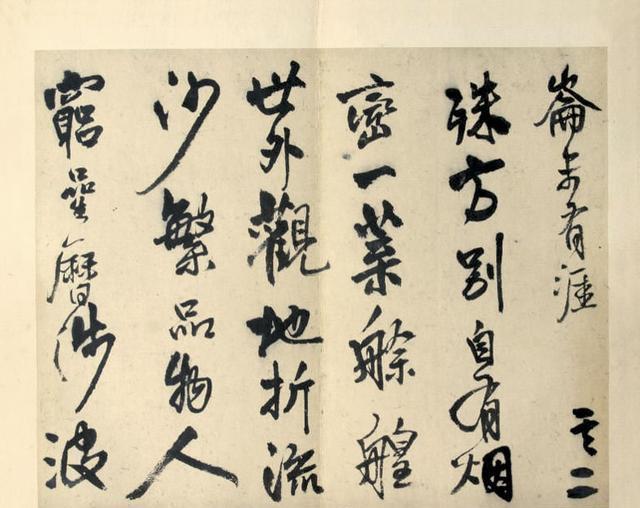 崙亦有涯　其二
殊方別自有烟
密一葉艅艎
世外觀地折流
沙繁品物人
窮曐曆涉波